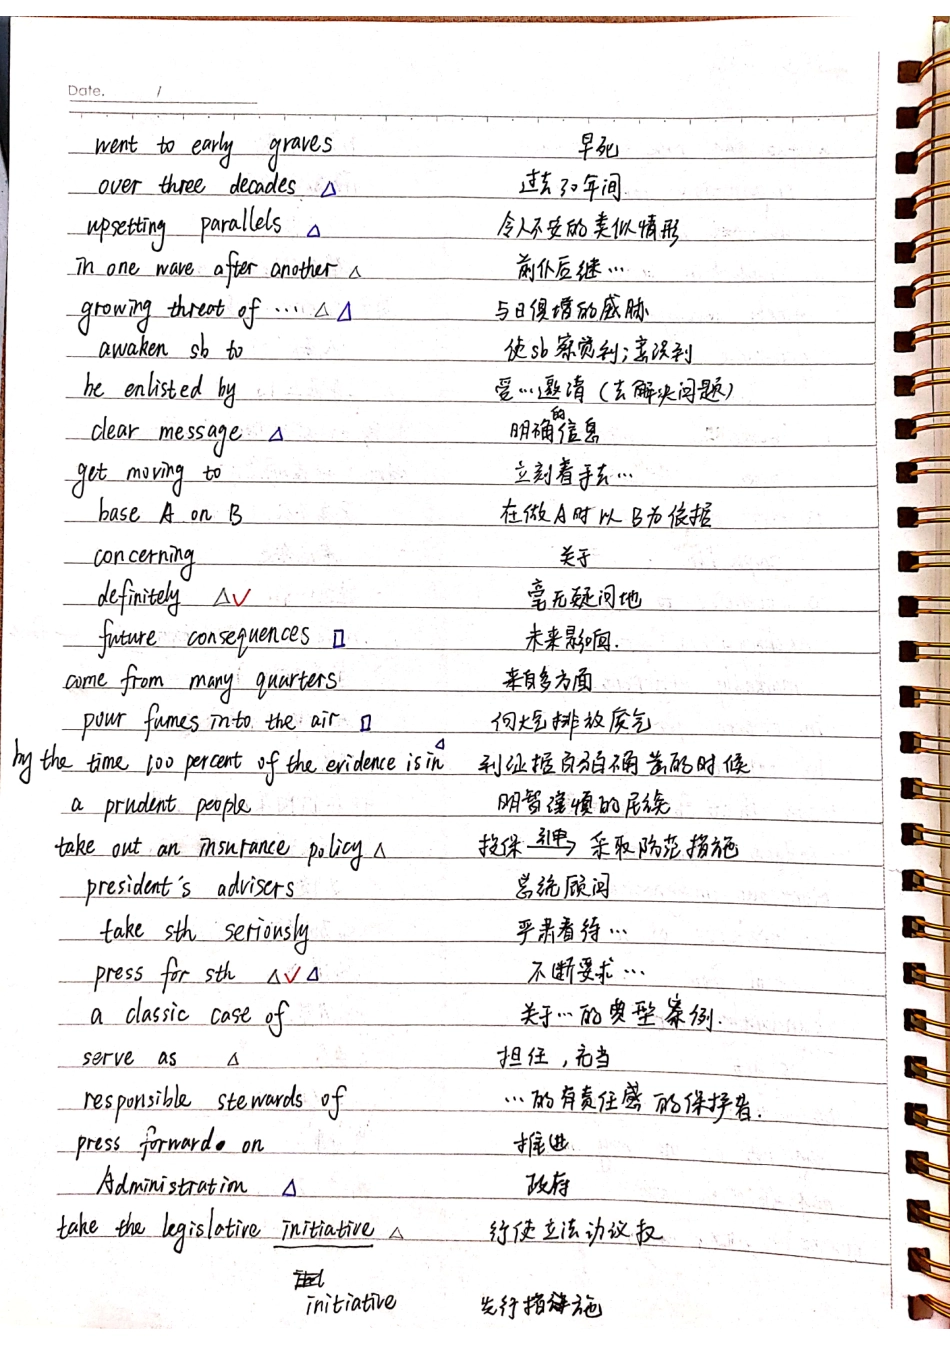 Date. /
went to early graves 早死
over three decades △ 过去30年间
upsetting parallels △ 令人不安的类似情形
in one wave after another △ 前仆后继…
growing threat of … △ △ 与日俱增的威胁
awaken sb to 使sb察觉到;意识到
be enlisted by 受…邀请(去解决问题)
clear message △ 明确的信息
get moving to 立刻着手去…
base A on B 在做A时以B为依据
concerning 关于
definitely △✓ 毫无疑问地
future consequences □ 未来影响.
come from many quarters 来自多方面
pour fumes into the air □ 向大气排放废气
by the time 100 percent of the evidence is in △ 到证据自白确凿的时候
a prudent people 明智谨慎的民族
take out an insurance policy △ 投保 引申→ 采取防范措施
president's advisers 总统顾问
take sth seriously 严肃看待…
press for sth △✓△ 不断要求…
a classic case of 关于…的典型案例.
serve as △ 担任,充当
responsible stewards of …的有责任感的保护者.
press forward on 推进
Administration △ 政府
take the legislative initiative △ 行使立法动议权
initiative 先行措施